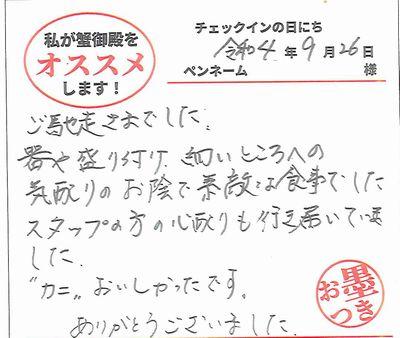 私が蟹御殿を
オススメ
します!
チェックインの日にち
令和4年9月26日
ペンネーム 様
ご馳走さまでした。
器や盛り付け、細いところへの
気配りのお陰で素敵な食事でした
スタッフの方の心配りも行き届いていま
した。
"カニ„おいしかったです。
ありがとうございました。
お墨つき